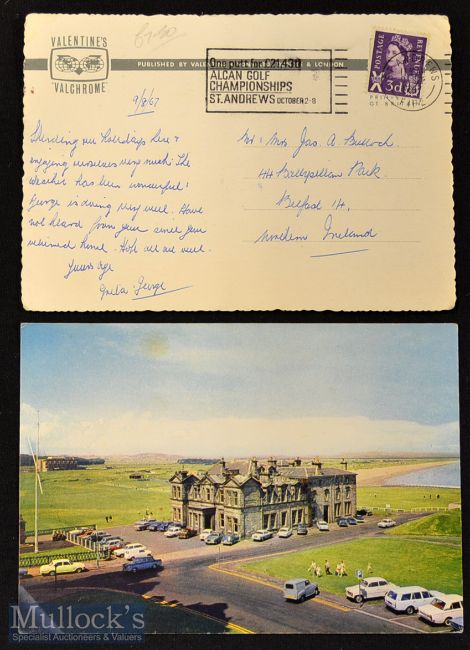 VALENTINE'S
"VALCHROME"
PUBLISHED BY VALENTINE & LONDON.
9/8/67
One putt for £21,430
ALCAN GOLF
CHAMPIONSHIPS
ST. ANDREWS OCTOBER 2-8
POSTAGE
REVENUE
3d
Spending our holidays here &
enjoying ourselves very much. The
weather has been wonderful!
George is doing very well. Have
not heard from you since you
returned home. Hope all are well.
Yours Aye
George
Mr & Mrs. Jas. A. Bulloch,
44 Park,
Belfast 14,
Northern Ireland
Mullock's
Specialist Auctioneers & Valuers